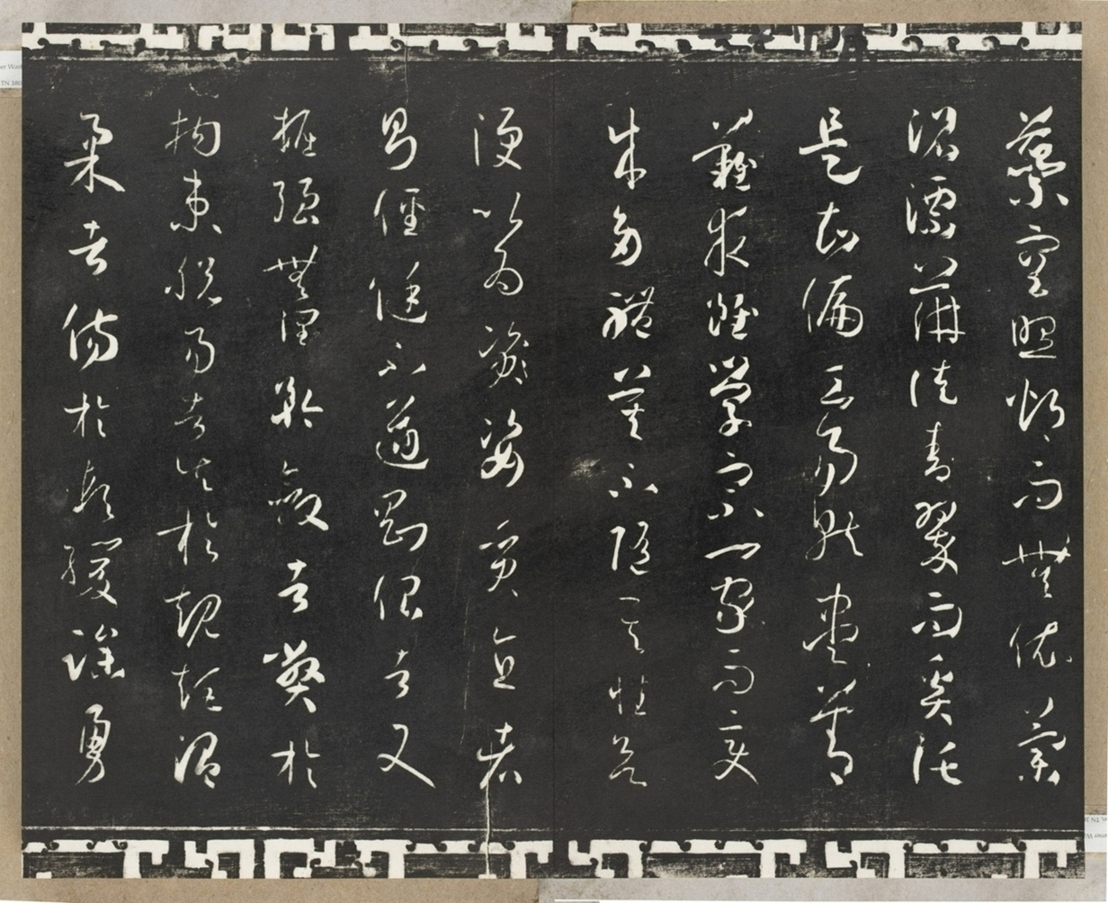 蘂空照灼而無依蘭
沼漂蓱徒青翠而奚託
是知偏工易就盡善
難求雖學宗一家而變
成多體莫不隨其性欲
便以為姿質直者
則徑侹不遒剛佷者又
掘強無潤矜斂者弊於
拘束脫易者失於規矩溫
柔者傷於軟緩躁勇